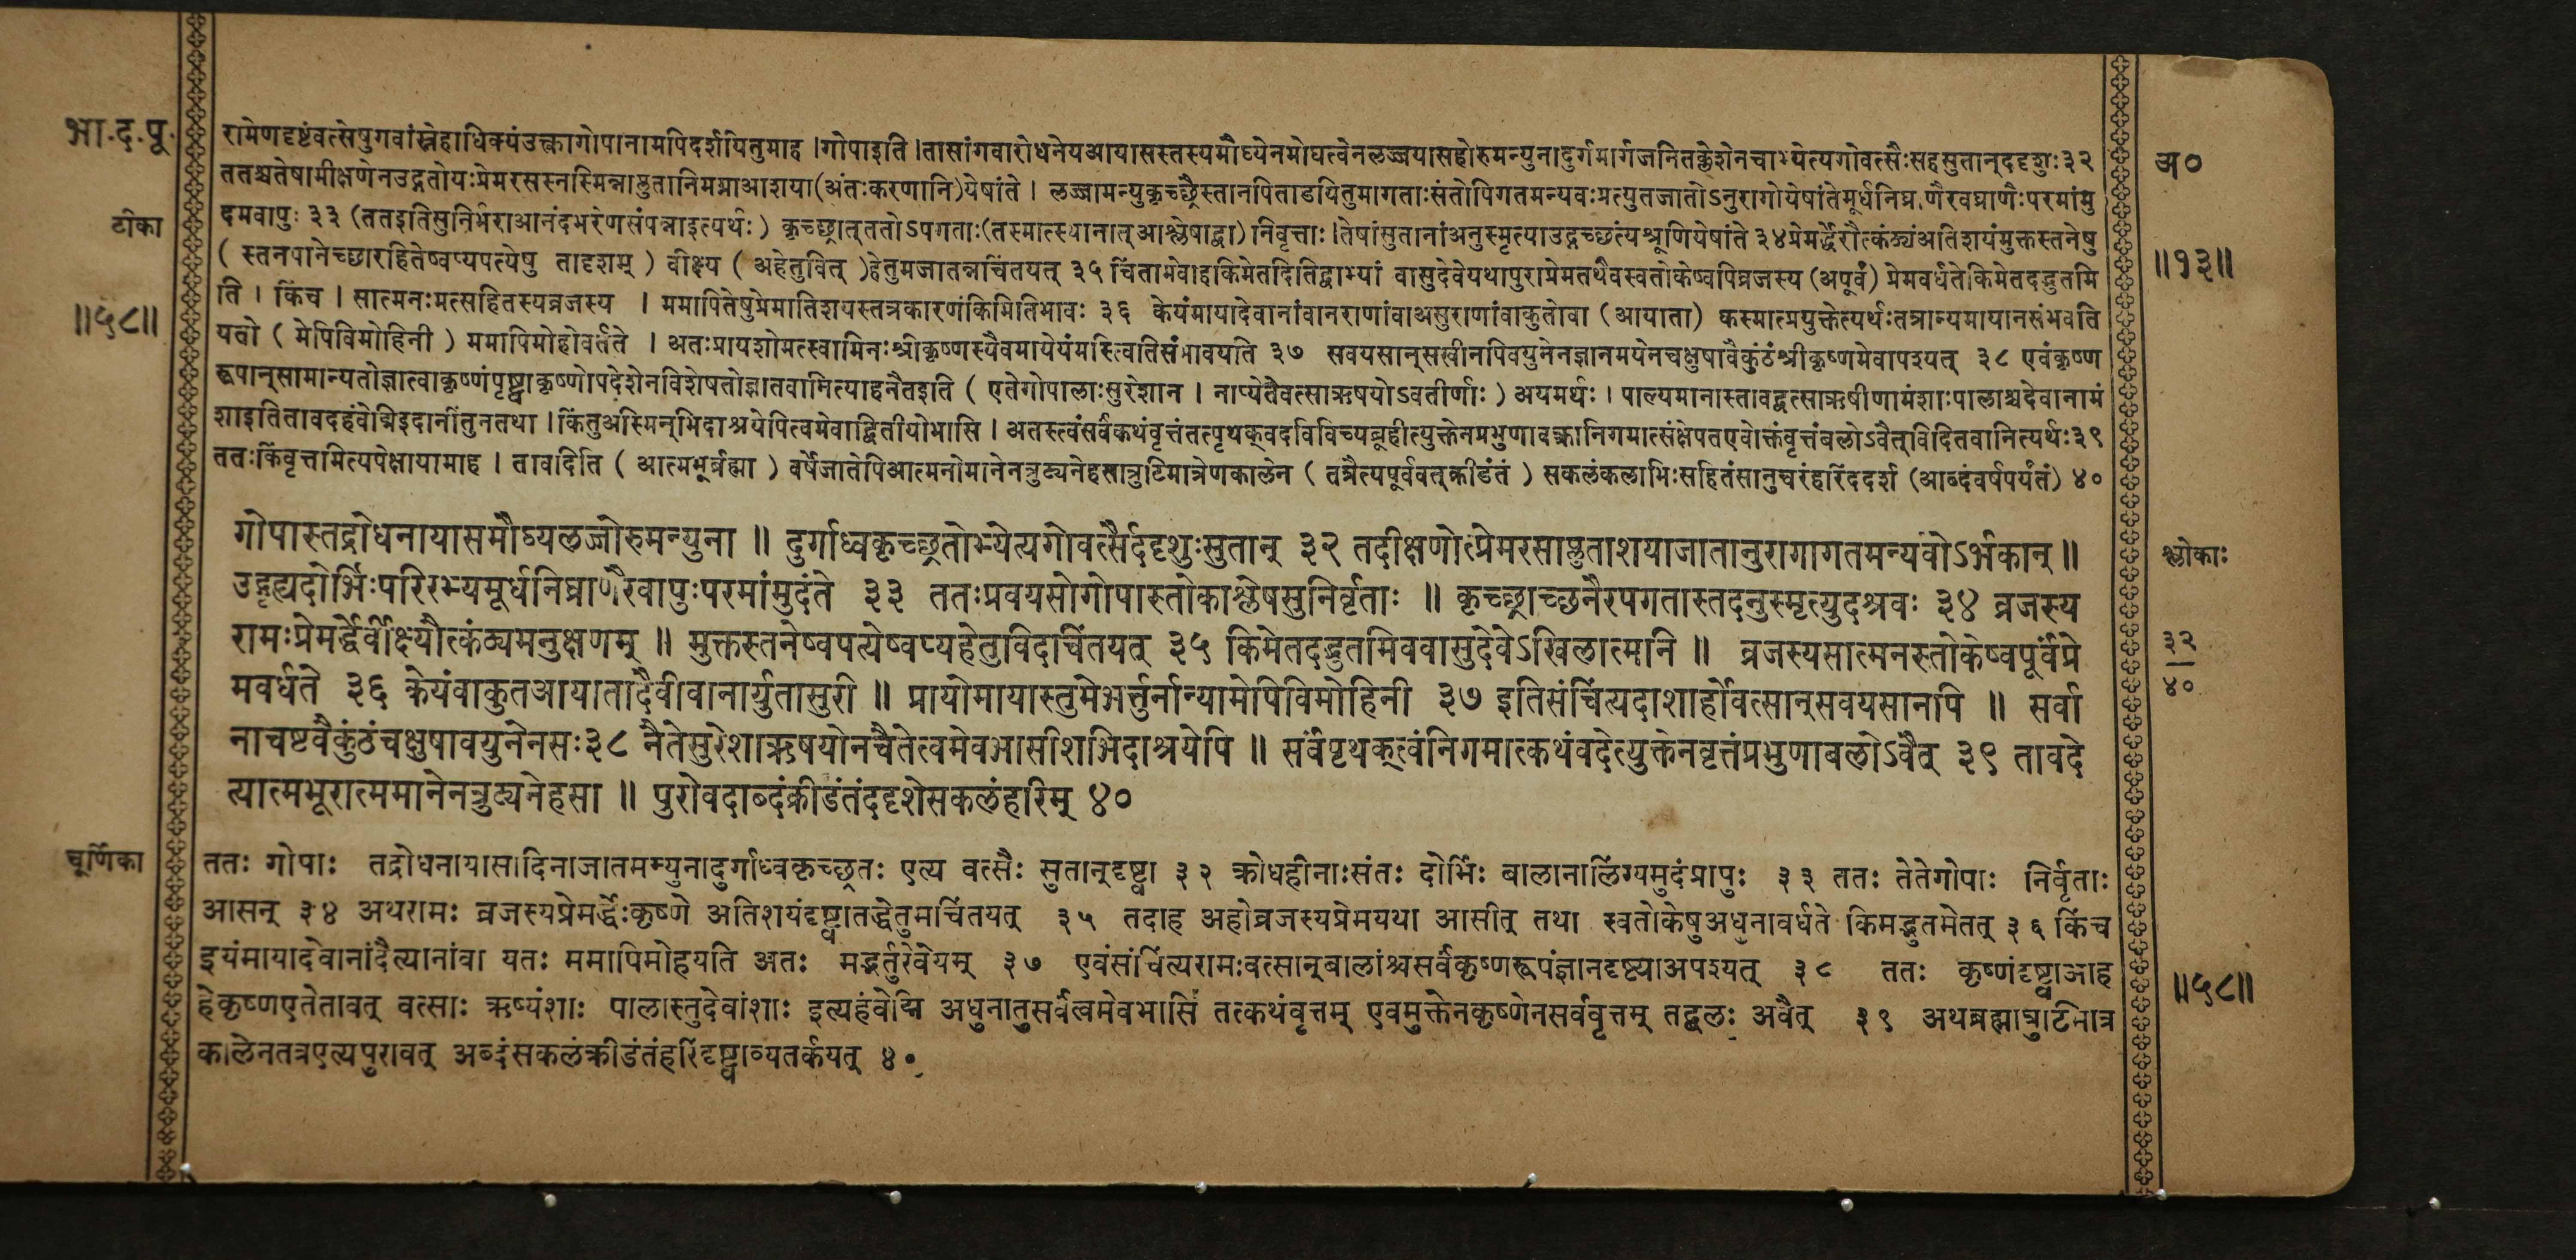 भा.द.पू.
रामेणदृष्टंवत्सेषुगवांस्नेहाधिक्यंउक्त्वागोपानामपिदर्शयितुमाह । गोपाइति । तासांगवारोधनेयआयासस्तस्यमौघ्येनमोघत्वेनलज्जयासहोरुमन्युनादुर्गमार्गजनितक्लेशेनचाभ्येत्यगोवत्सैःसहसुतान्ददृशुः३२
अ०
ततश्चतेषामीक्षणेनउद्गतोयःप्रेमरसस्तस्मिन्नाप्लुतानिमग्नाआशया(अंतःकरणानि)येषांते । लज्जामन्युकृच्छ्रैस्तानपिताडयितुमागताःसंतोपिगतमन्यवःप्रत्युतजातोऽनुरागोयेषांतेमूर्धनिघ्राणैरवघ्राणैःपरमांमु
टीका
दमवापुः ३३ (ततइतिसुनिर्भराआनंदभरेणसंपन्नाइत्यर्थः) कृच्छ्रात्ततोऽपगताः(तस्मात्स्थानात्आश्लेषाद्वा)निवृत्ताः।तेषांसुतानांअनुस्मृत्याउद्गच्छंत्यश्रूणियेषांते ३४प्रेमर्द्धेरौत्कंठ्यंअतिशयंमुक्तस्तनेषु
( स्तनपानेच्छारहितेष्वप्यपत्येषु तादृशम् ) वीक्ष्य ( अहेतुवित् )हेतुमजातन्नचिंतयत् ३५ चिंतामेवाहकिमेतदितिद्वाभ्यां वासुदेवेयथापुराप्रेमतथैवस्वतोकेष्वपिव्रजस्य (अपूर्वं) प्रेमवर्धतेकिमेतदद्भुतमि
॥१३॥
ति । किंच । सात्मनःमत्सहितस्यव्रजस्य । ममापितेषुप्रेमातिशयस्तत्रकारणंकिमितिभावः ३६ केयंमायादेवानांवानराणांवाअसुराणांवाकुतोवा (आयाता) कस्मात्प्रयुक्तेत्यर्थःतत्रान्यमायानसंभवति
॥५८॥
यतो ( मेपिविमोहिनी ) ममापिमोहोवर्तते । अतःप्रायशोमत्स्वामिनःश्रीकृष्णस्यैवमायेयंमस्त्वितिसंभावयति ३७ सवयसान्सखीनपिवयुनेनज्ञानमयेनचक्षुषावैकुंठंश्रीकृष्णमेवापश्यत् ३८ एवंकृष्ण
रूपान्सामान्यतोज्ञात्वाकृष्णंपृष्ट्वाकृष्णोपदेशेनविशेषतोज्ञातवामित्याहनैतइति ( एतेगोपालाःसुरेशान । नाप्येतेवत्साऋषयोऽवतीर्णाः ) अयमर्थः । पाल्यमानास्तावद्वत्साऋषीणामंशाःपालाश्चदेवानामं
शाइतितावदहंवेद्मिइदानींतुनतथा । किंतुअस्मिन्भिदाश्रयेपित्वमेवाद्वितीयोभासि । अतस्त्वंसर्वंकथंवृत्तंतत्पृथक्वदविविच्यब्रूहीत्युक्तेनप्रभुणावक्कानिगमात्संक्षेपतएवोक्तंवृत्तंबलोऽवैत्विदितवानित्यर्थः३९
ततःकिंवृत्तमित्यपेक्षायामाह । तावदिति ( आत्मभूर्ब्रह्मा ) वर्षेजातेपिआत्मनोमानेनत्रुट्यनेहसात्रुटिमात्रेणकालेन ( तत्रैत्यपूर्ववत्क्रीडंतं ) सकलंकलाभिःसहितंसानुचरंहरिंददर्श (आब्दंवर्षपर्यंतं) ४०
गोपास्तद्रोधनायासमौघ्यलज्जोरुमन्युना ॥ दुर्गाध्वकृच्छ्रतोभ्येत्यगोवत्सैर्ददृशुःसुतान् ३२ तदीक्षणोत्प्रेमरसाप्लुताशयाजातानुरागागतमन्यवोऽर्भकान् ॥
श्लोकाः
उद्गृह्यदोर्भिःपरिरभ्यमूर्धनिघ्राणैरवापुःपरमांमुदंते ३३ ततःप्रवयसोगोपास्तोकाश्लेषसुनिर्वृताः ॥ कृच्छ्राच्छनैरपगतास्तदनुस्मृत्युदश्रवः ३४ व्रजस्य
रामःप्रेमर्द्धेर्वीक्ष्यौत्कंठ्यमनुक्षणम् ॥ मुक्तस्तनेष्वपत्येष्वप्यहेतुविदचिंतयत् ३५ किमेतदद्भुतमिववासुदेवेऽखिलात्मनि ॥ व्रजस्यसात्मनस्तोकेष्वपूर्वंप्रे
३२
मवर्धते ३६ केयंवाकुतआयातादैवीवानार्युतासुरी ॥ प्रायोमायास्तुमेभर्त्तुर्नान्यामेपिविमोहिनी ३७ इतिसंचिंत्यदाशार्होवत्सान्सवयसानपि ॥ सर्वा
४०
नाचष्टवैकुंठंचक्षुषावयुनेनसः३८ नैतेसुरेशाऋषयोनचैतेत्वमेवभासीशभिदाश्रयेपि ॥ सर्वंपृथक्त्वंनिगमात्कथंवदेत्युक्तेनवृत्तंप्रभुणाबलोऽवैत् ३९ तावदे
त्यात्मभूरात्ममानेनत्रुट्यनेहसा ॥ पुरोवदाब्दंक्रीडंतंददृशेसकलंहरिम् ४०
चूर्णिका
ततः गोपाः तद्रोधनायासादिनाजातमम्युनादुर्गाध्वकृच्छ्रतः एत्य वत्सैः सुतान्दृष्ट्वा ३२ क्रोधहीनाःसंतः दोर्भिः बालानालिंग्यमुदंप्रापुः ३३ ततः तेतेगोपाः निर्वृताः
आसन् ३४ अथरामः व्रजस्यप्रेमर्द्धेःकृष्णे अतिशयंदृष्ट्वातद्धेतुमचिंतयत् ३५ तदाह अहोव्रजस्यप्रेमयथा आसीत् तथा स्वतोकेषुअधुनावर्धते किमद्भुतमेतत् ३६ किंच
इयंमायादेवानांदैत्यानांवा यतः ममापिमोहयति अतः मद्भर्तुरेवेयम् ३७ एवंसंचिंत्यरामःवत्सान्बालांश्चसर्वंकृष्णरूपंज्ञानदृष्ट्याअपश्यत् ३८ ततः कृष्णंदृष्ट्वाआह
॥५८॥
हेकृष्णएतेतावत् वत्साः ऋष्यंशाः पालास्तुदेवांशाः इत्यहंवेद्मि अधुनातुसर्वंत्वमेवभासि तत्कथंवृत्तम् एवमुक्तेनकृष्णेनसर्ववृत्तम् तद्बलः अवैत् ३९ अथब्रह्मात्रुटिमात्र
कालेनतत्रएत्यपुरावत् अब्दंसकलंक्रीडंतंहरिंदृष्ट्वाव्यतर्कयत् ४०